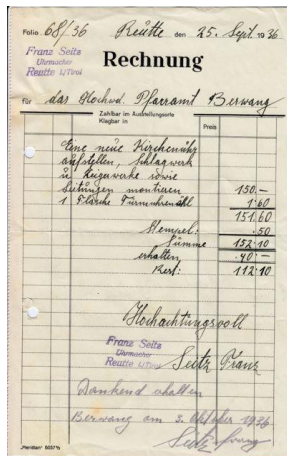 Folio 68/36 Reutte den 25. Sept. 1936
Franz Seitz
Uhrmacher
Reutte i/Tirol
Rechnung
für das Hochwd. Pfarramt Berwang
Zahlbar im Ausstellungsorte
Klagbar in
Preis
Eine neue Kirchenuhr
aufstellen, Schlagwerk
u. Zeigerwerke sowie
Leitungen montieren 150.–
1 Flasche Turmuhrenöhl 1.60
151.60
Stempel: .50
Summe 152.10
erhalten 40.–
Rest: 112.10
Hochachtungsvoll
Franz Seitz
Uhrmacher
Reutte i/Tirol
Seitz Franz
Dankend erhalten
Berwang am 3. Oktober 1936
Seitz Franz
"Meridian" 5037½